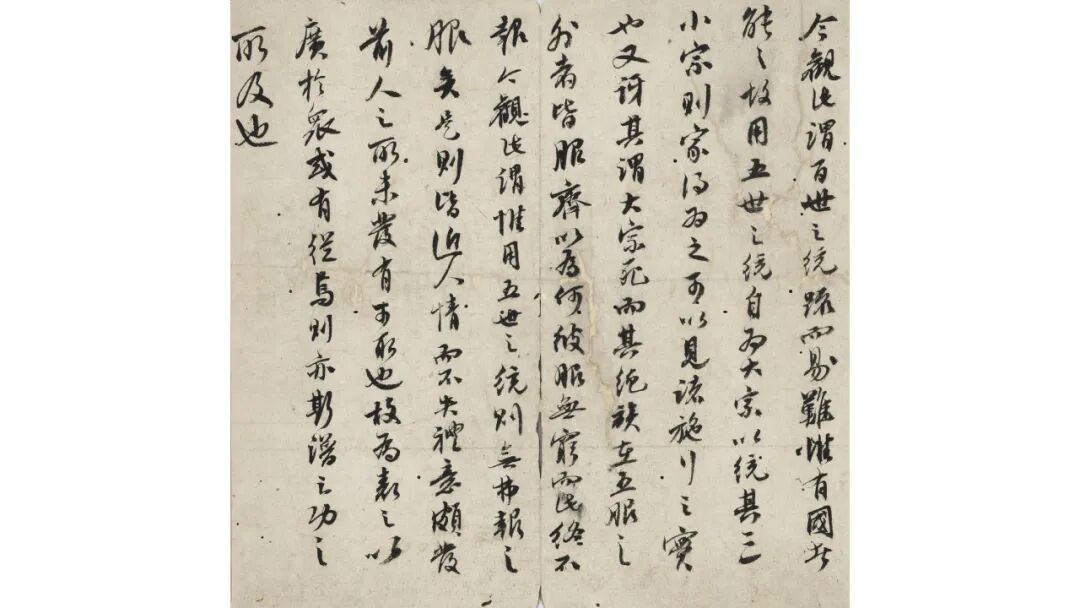 今觀此謂百世之統疏而易難惟有國者
能之故用五世之統自為大宗以統其三
小宗則家得為之可以見諸施行之實
也又訝其謂大宗死而其絕族在五服之
外者皆服齊以為何彼服無窮而此終不
報今觀此謂惟用五世之統則無弗報之
服矣是則皆近人情而不失禮意頗發
前人之所未發有可取也故為表之以
廣於衆或有從焉則亦斯譜之功之
所及也